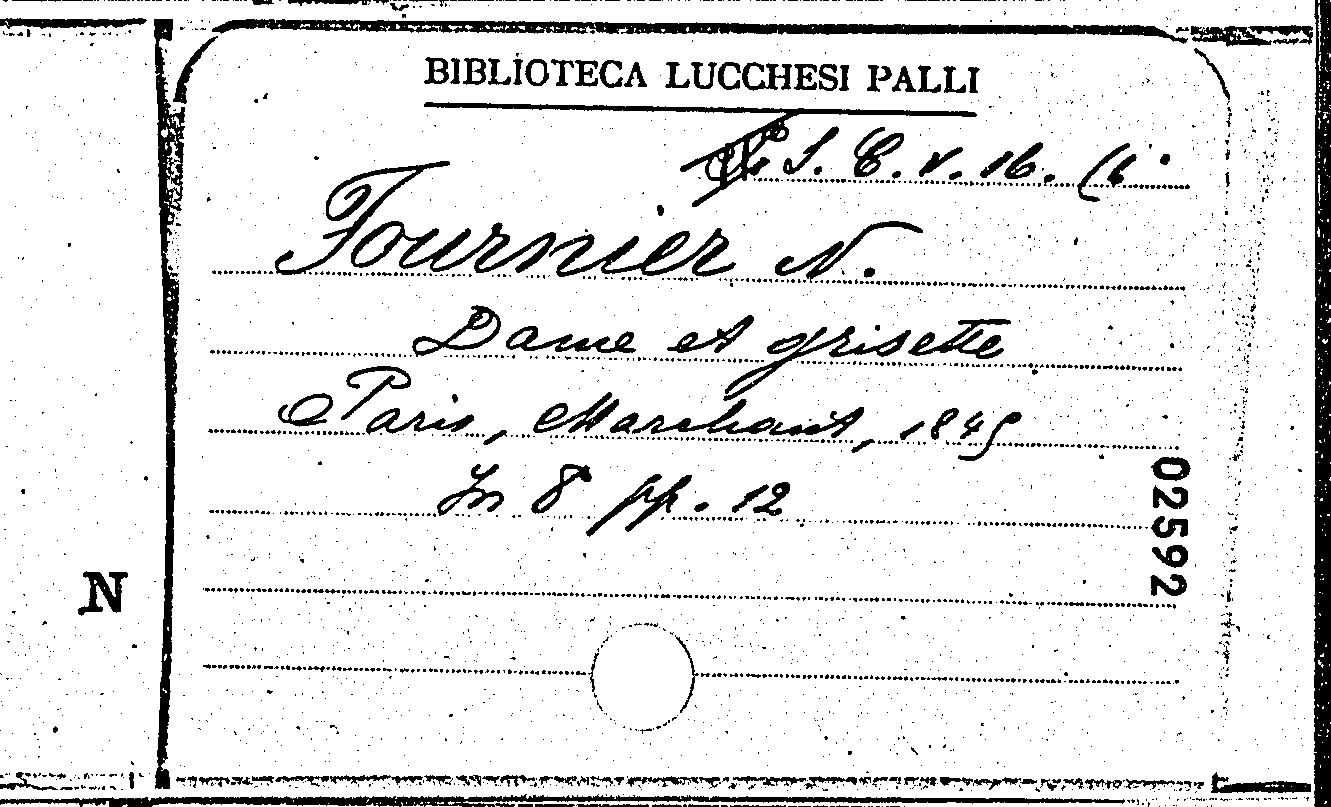 BIBLIOTECA LUCCHESI PALLI
S. C. V. 16. (6
Fournier N.
Dame et grisette
Paris, Marchant, 1845
In 8° pp. 12
02592
N